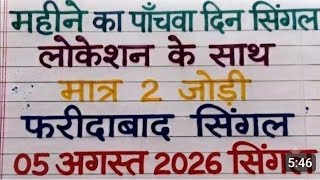 महीने का पाँचवा दिन सिंगल
लोकेशन के साथ
मात्र 2 जोड़ी
फरीदाबाद सिंगल
05 अगस्त 2026 सिंगल
5:46